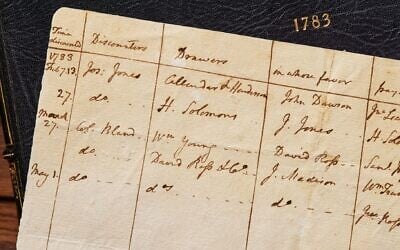 1783
Time discounted Discounters Drawers in whose favor pay
1783
Feb. 13. Jos. Jones Callendar & Henderson John Dawson
27. do. H. Solomons J. Jones H Solo
March 27. Col. Bland Wm Young David Ross Saml
do. David Ross & Co. J. Madison Wm Trac
May 1. do do. do